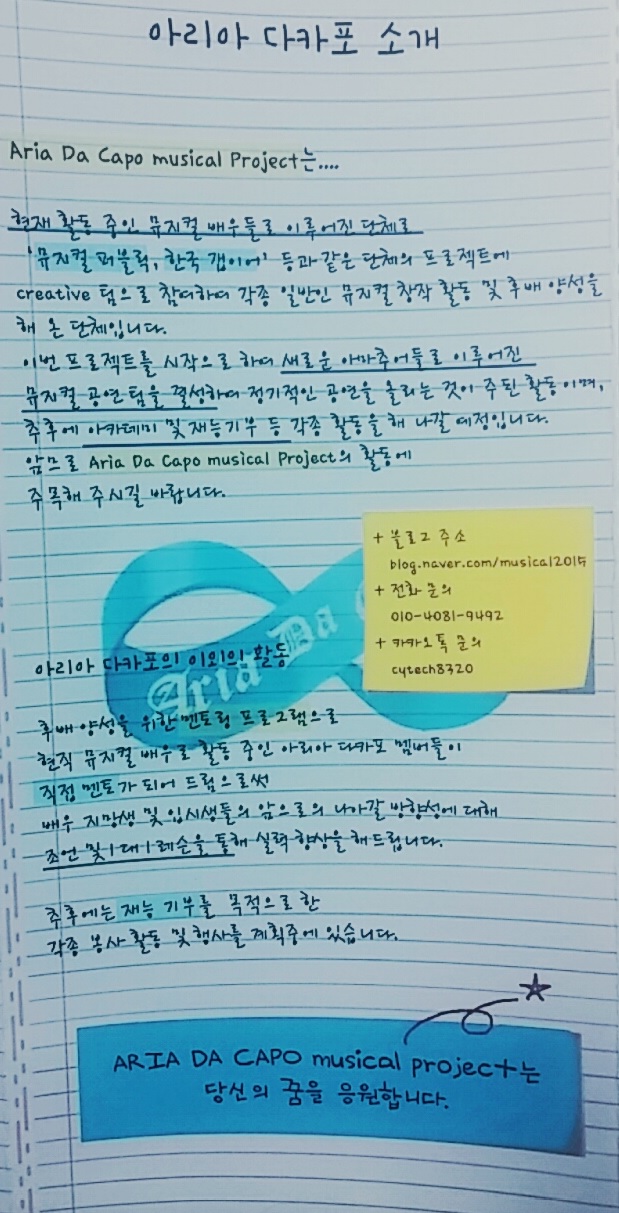 아리아 다카포 소개
Aria Da Capo musical Project는....
현재 활동 중인 뮤지컬 배우들로 이루어진 단체로
'뮤지컬 퍼블릭, 한국 갭이어' 등과 같은 단체의 프로젝트에
creative 팀으로 참여하여 각종 일반인 뮤지컬 창작 활동 및 후배 양성을
해 온 단체입니다.
이번 프로젝트를 시작으로 하여 새로운 아마추어들로 이루어진
뮤지컬 공연팀을 결성하여 정기적인 공연을 올리는 것이 주된 활동이며,
추후에 아카데미 및 재능기부 등 각종 활동을 해 나갈 예정입니다.
앞으로 Aria Da Capo musical Project의 활동에
주목해 주시길 바랍니다.
+ 블로그 주소
blog.naver.com/musical2015
+ 전화 문의
010-4081-9492
+ 카카오톡 문의
cytech8320
Aria Da
아리아 다카포의 이외의 활동
후배 양성을 위한 멘토링 프로그램으로
현직 뮤지컬 배우로 활동 중인 아리아 다카포 멤버들이
직접 멘토가 되어 드림으로써
배우 지망생 및 입시생들의 앞으로의 나아갈 방향성에 대해
조언 및 1대1 레슨을 통해 실력 향상을 해드립니다.
추후에는 재능 기부를 목적으로 한
각종 봉사 활동 및 행사를 계획중에 있습니다.
ARIA DA CAPO musical project는
당신의 꿈을 응원합니다.